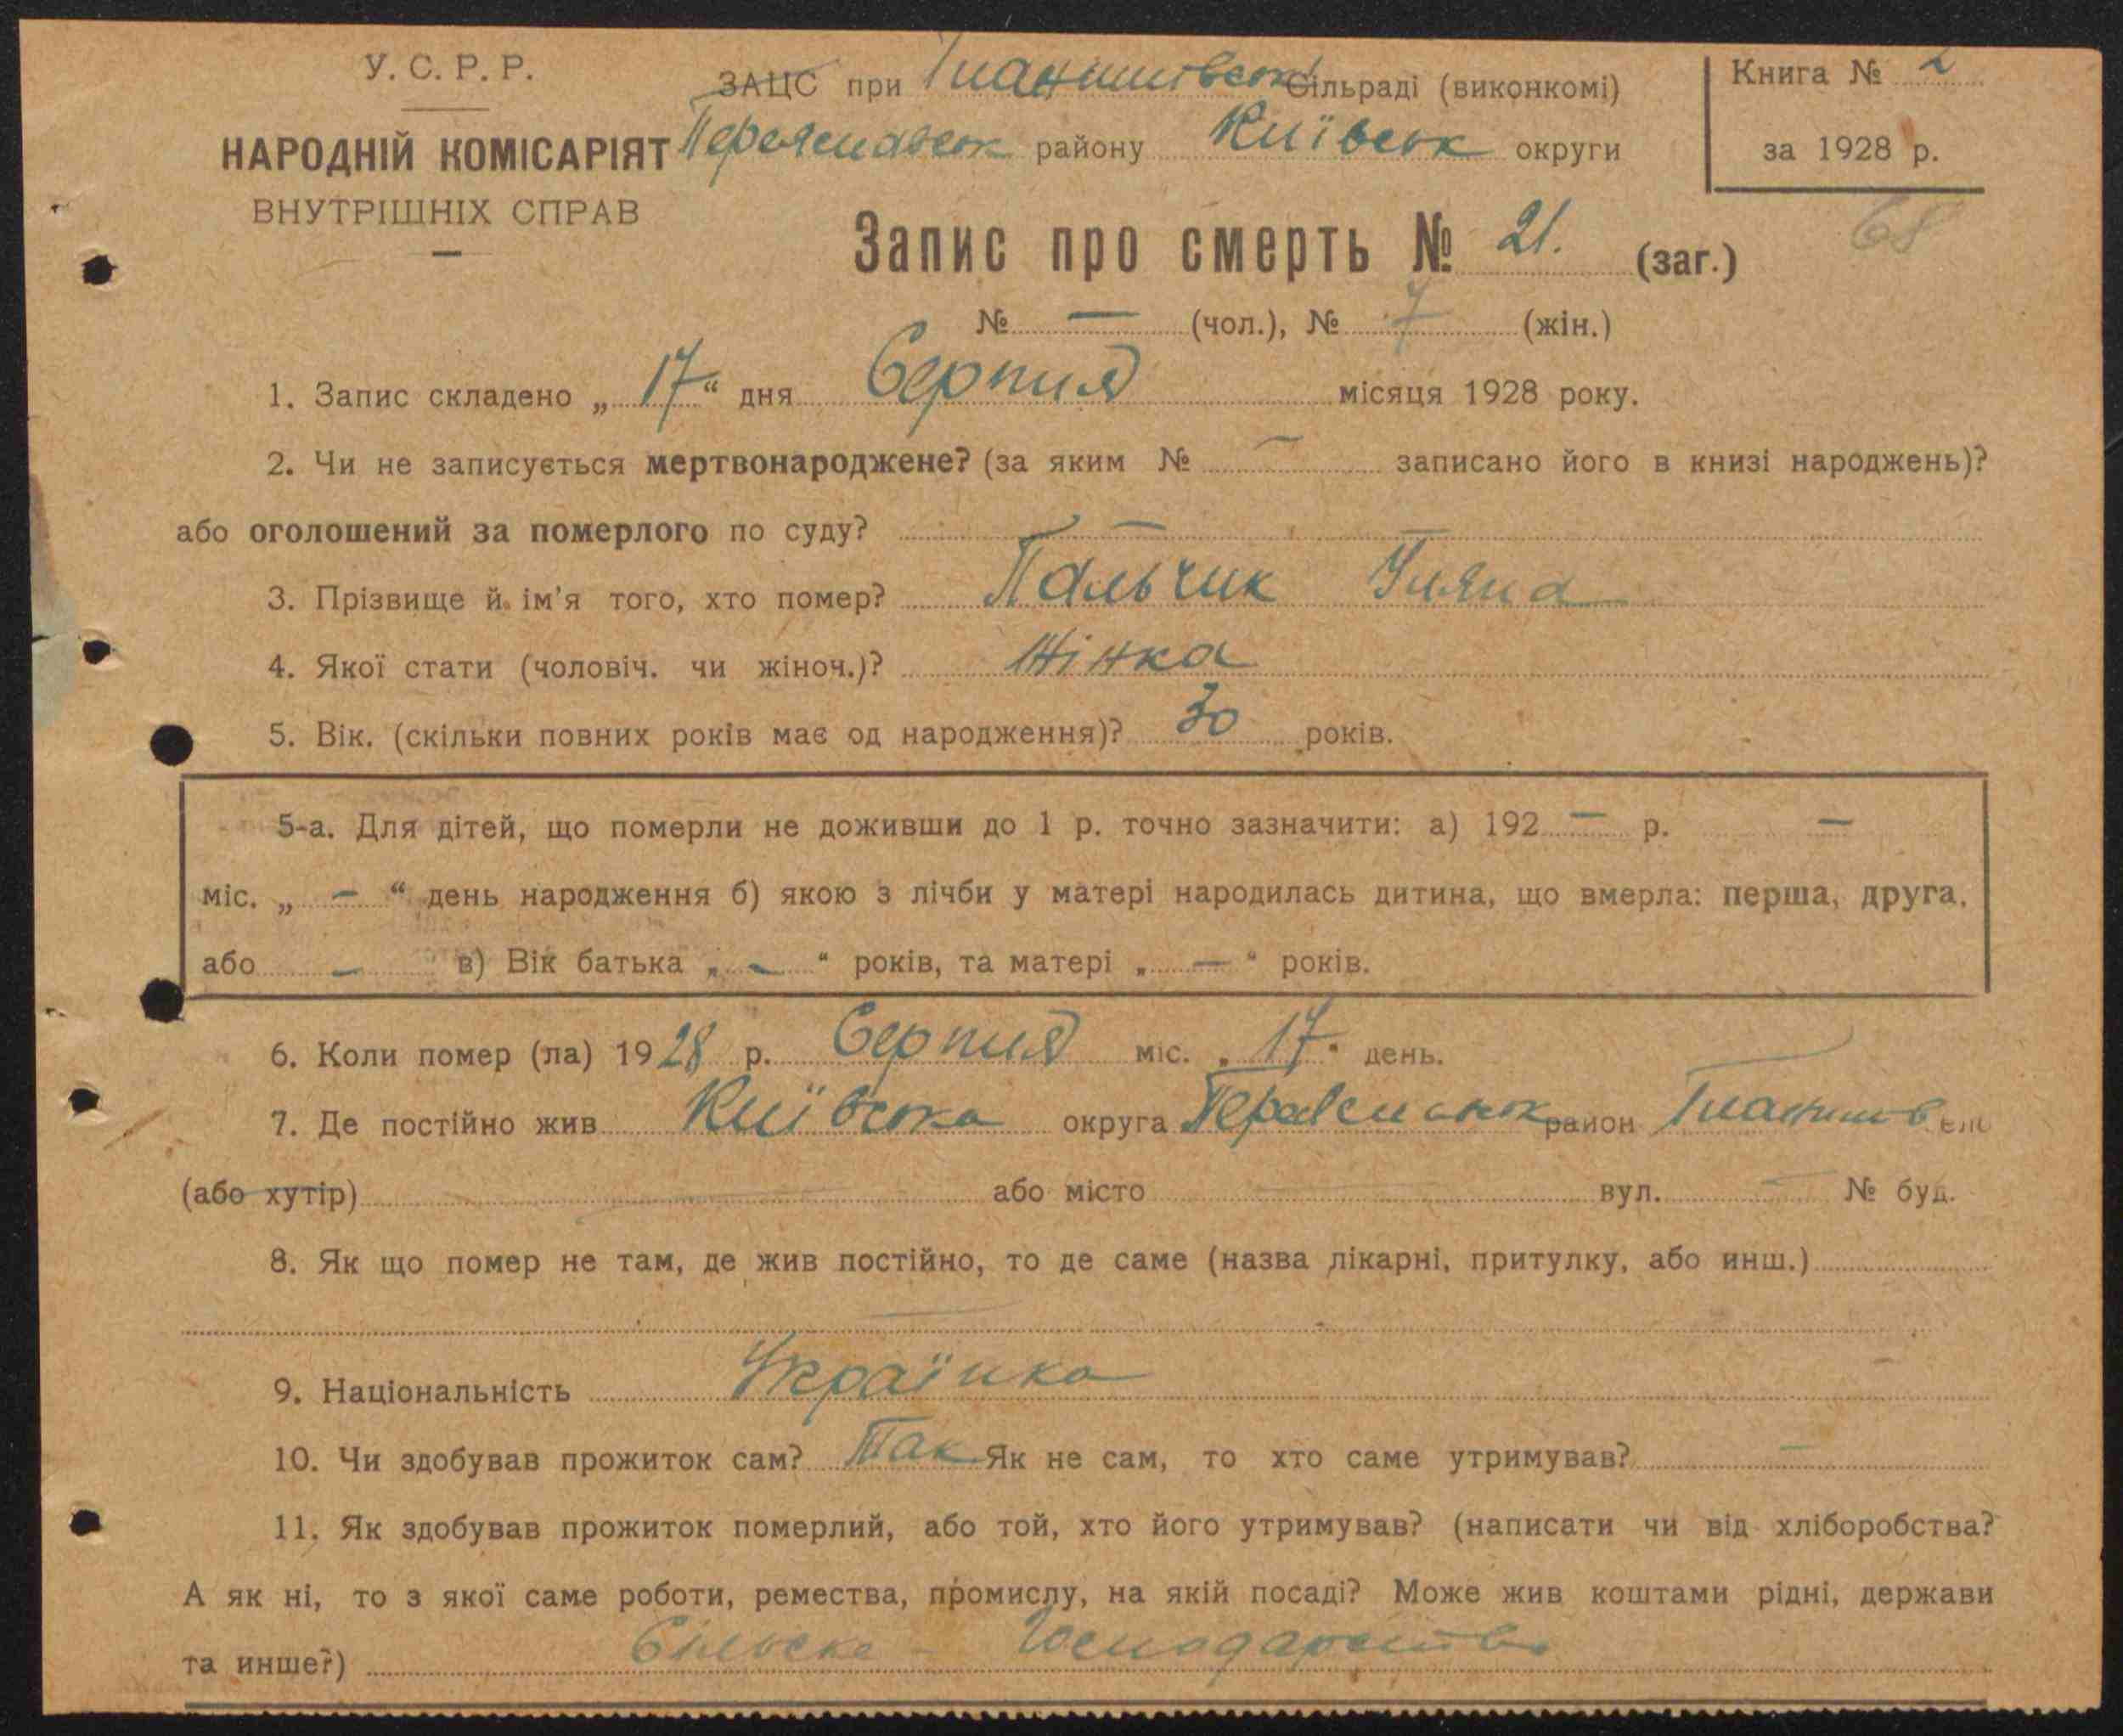 У. С. Р. Р.
ЗАЦС при Гланишівськ Сільраді (виконкомі)
Книга № 2
НАРОДНІЙ КОМІСАРІЯТ
Переяславськ району Київськ округи
за 1928 р.
ВНУТРІШНІХ СПРАВ
Запис про смерть № 21. (заг.)
68
№ — (чол.), № 7 (жін.)
1. Запис складено „ 17 “ дня Серпня місяця 1928 року.
2. Чи не записується мертвонароджене? (за яким № — записано його в книзі народжень)?
або оголошений за померлого по суду? —
3. Прізвище й ім'я того, хто помер? Пальчик Уляна
4. Якої стати (чоловіч. чи жіноч.)? Жінка
5. Вік. (скільки повних років має од народження)? 30 років.
5-а. Для дітей, що померли не доживши до 1 р. точно зазначити: а) 192 — р. —
міс. „ — “ день народження б) якою з лічби у матері народилась дитина, що вмерла: перша, друга,
або — в) Вік батька „ — “ років, та матері „ — “ років.
6. Коли помер (ла) 1928 р. Серпня міс. „ 17 “ день.
7. Де постійно жив Київська округа район
(або хутір) — або місто — вул. — № буд.
8. Як що помер не там, де жив постійно, то де саме (назва лікарні, притулку, або инш.)
—
9. Національність Українка
10. Чи здобував прожиток сам? Так Як не сам, то хто саме утримував? —
11. Як здобував прожиток померлий, або той, хто його утримував? (написати чи від хліборобства?
А як ні, то з якої саме роботи, ремества, промислу, на якій посаді? Може жив коштами рідні, держави
та инше?) Сільске - Господарство